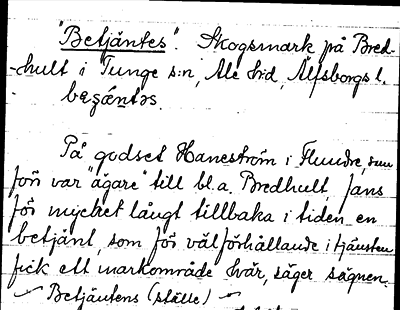 "Betjäntes". Skogsmark på Bred-
-hult i Tunge s:n, Ale hd, Älfsborgs l.
På godset Haneström i Flundre, som
förr var "ägare" till bl.a. Bredhult, fans
för mycket långt tillbaka i tiden en
betjänt, som för välförhållande i tjänsten
fick ett markområde här, säger sägnen.
Betjäntens (ställe)